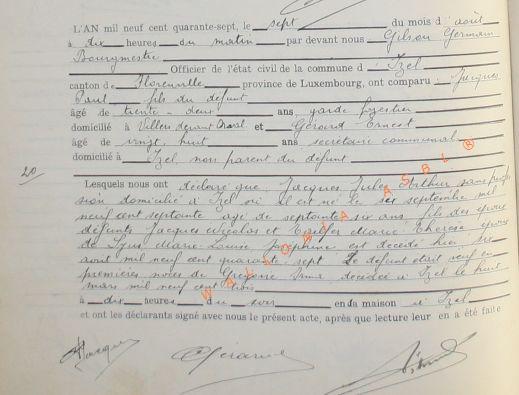 L'AN mil neuf cent quarante-sept, le sept du mois d'août
à dix heures du matin par devant nous Gilson Germain
Bourgmestre Officier de l'état civil de la commune d'Izel
canton de Florenville province de Luxembourg, ont comparu : Jacques
Paul fils du défunt
âgé de trente-deux ans garde forestier
domicilié à Villers devant Orval et Gérard Ernest
âgé de vingt huit ans secrétaire communal
domicilié à Izel non parent du défunt
20
Lesquels nous ont déclaré que Jacques Jules Arthur sans profes
sion domicilié à Izel où il est né le six septembre mil
neuf cent septante agé de septante six ans, fils des époux
défunts Jacques Nicolas et Marie Thérèse époux
de Marie-Louise Joséphine est décédé hier six
août mil neuf cent quarante sept. Le défunt était veuf en
premières noces de Grégoire Irma décédée à Izel le huit
mars mil neuf cent trois
à dix heures du soir en sa maison à Izel
et ont les déclarants signé avec nous le présent acte, après que lecture leur en a été faite
WALLONIA ASBL ®
Jacques Gérard